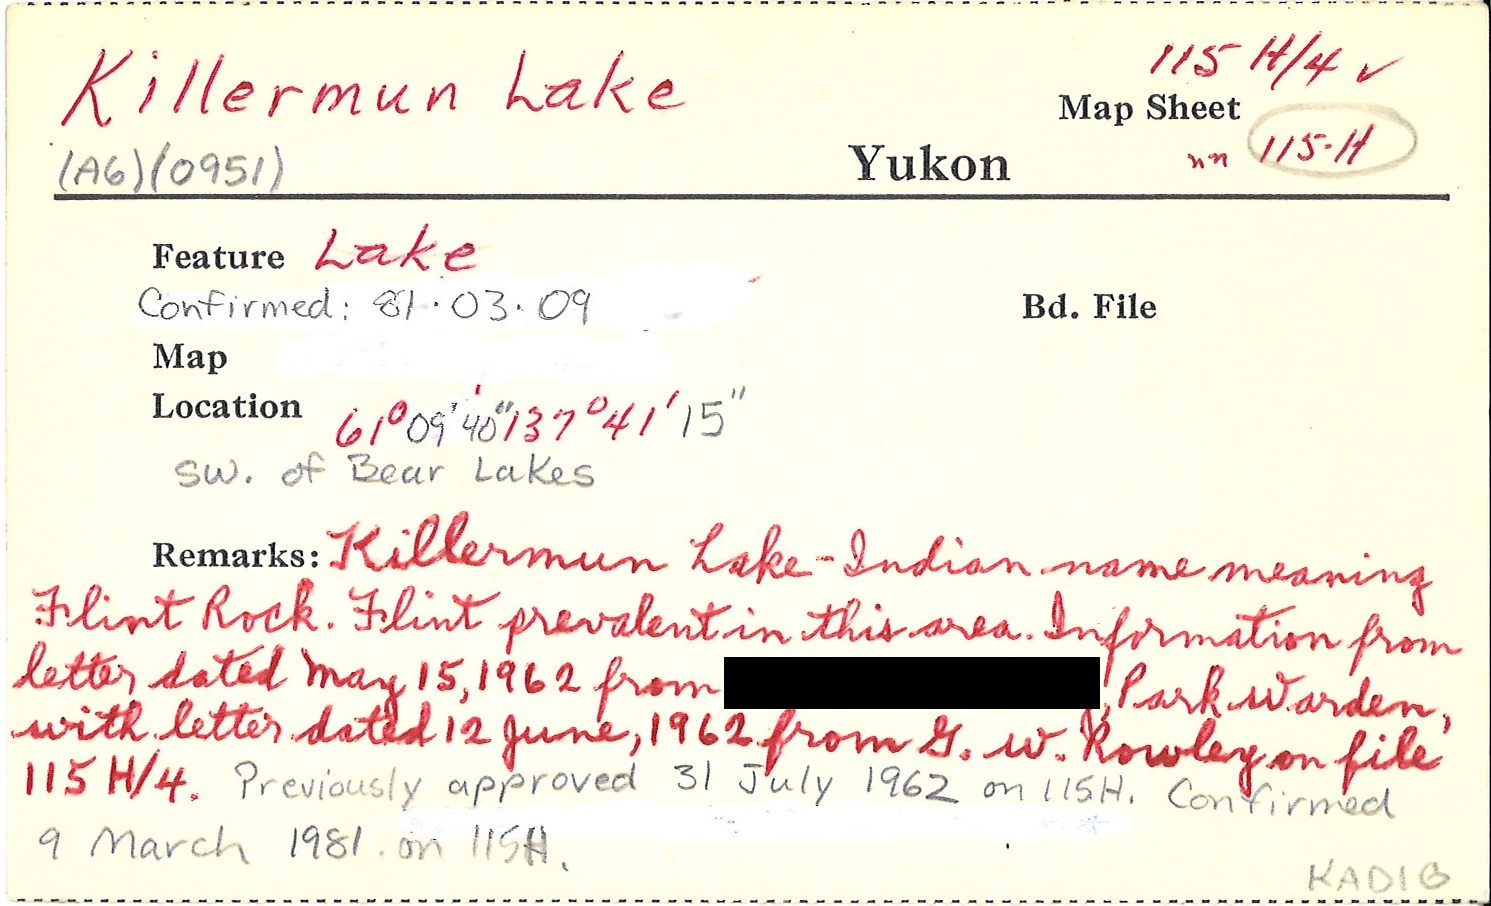 Killermun Lake
115 H/4 ✓
Map Sheet
(A6)(0951)
Yukon
"" 115-H
Feature Lake
Confirmed: 81·03·09
Bd. File
Map
Location 61°09'40"137°41'15"
SW. of Bear Lakes
Remarks: Killermun Lake-Indian name meaning
Flint Rock. Flint prevalent in this area. Information from
letter dated May 15, 1962 from , Park Warden,
with letter dated 12 June, 1962 from G. W. Rowley on file
115 H/4. Previously approved 31 July 1962 on 115H. Confirmed
9 March 1981. on 115H.